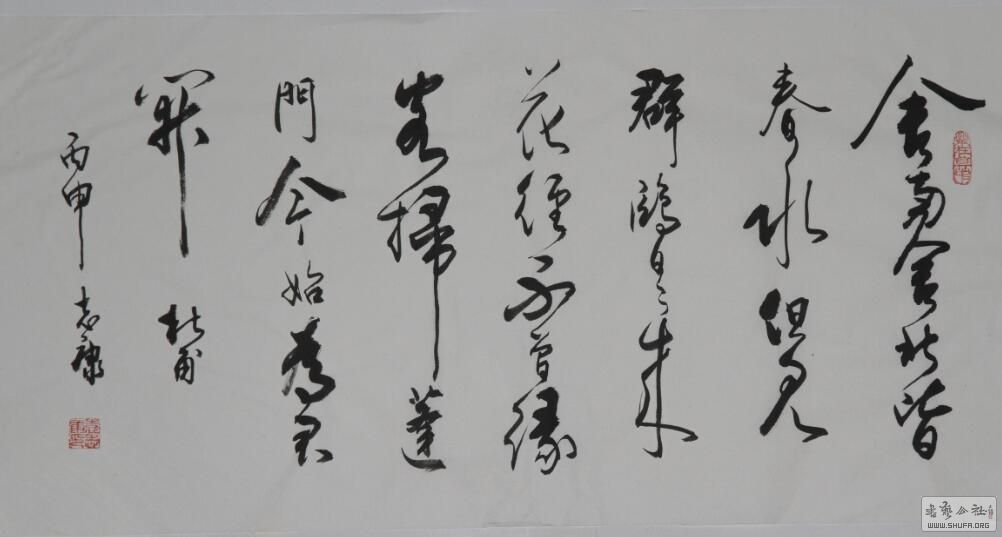 舍南舍北皆
春水但見
群鷗日々來
花徑不曾緣
客掃蓬
門今始為君
開 杜甫
丙申 志
书艺公社
WWW.SHUFA.ORG